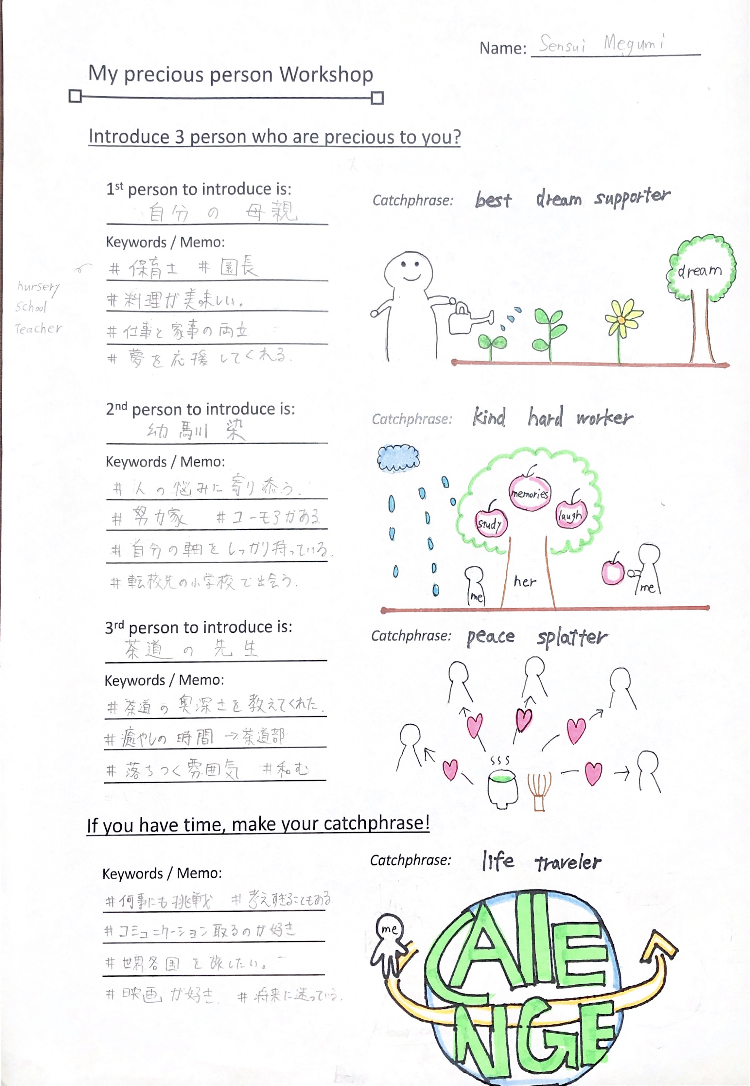 Name: Sensui Megumi
My precious person Workshop
Introduce 3 person who are precious to you?
1st person to introduce is:
自分 の 母親
Keywords / Memo:
# 保育士 # 園長
nursery
School
Teacher
# 料理が美味しい。
# 仕事と家事の両立
# 夢を応援してくれる.
Catchphrase: best dream supporter
dream
2nd person to introduce is:
幼馴染
Keywords / Memo:
# 人の悩みに寄り添う.
# 努力家 # ユーモアがある
# 自分の軸をしっかり持っている.
# 転校先の小学校で出会う.
Catchphrase: kind hard worker
memories
study
laugh
her
me
me
3rd person to introduce is:
茶道 の 先生
Keywords / Memo:
# 茶道の奥深さを教えてくれた.
# 癒やしの時間 → 茶道部
# 落ちつく雰囲気 # 和む
Catchphrase: peace splatter
If you have time, make your catchphrase!
Keywords / Memo:
# 何事にも挑戦 # 考えすぎることもある.
# コミュニケーション取るのが好き
# 世界各国を旅したい。
# 映画が好き. # 将来に迷っている.
Catchphrase: life traveler
me
CAllE
NGE